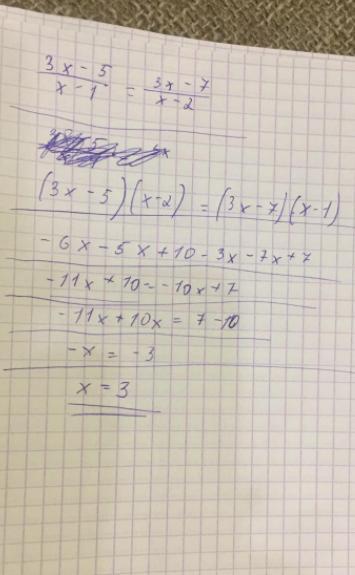 3x - 5 / x - 1 = 3x - 7 / x - 2
(3x - 5)(x-2) = (3x-7)(x-1)
-6x - 5x + 10 - 3x - 7x + 7
-11x + 10 = -10x + 7
-11x + 10x = 7 - 10
-x = -3
x = 3